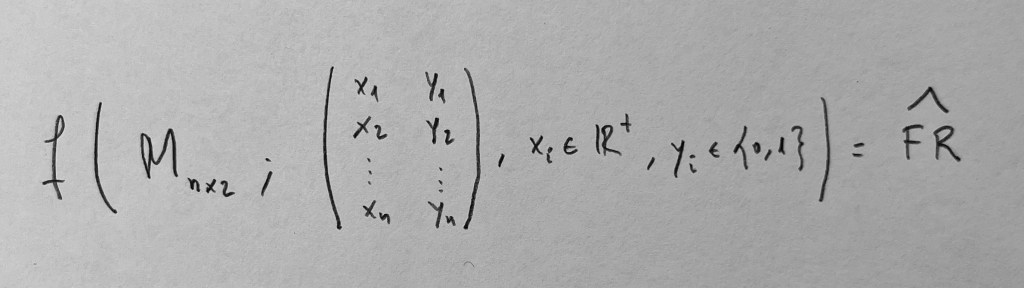 f ( M_{n×2} ; \begin{pmatrix} x_1 & y_1 \\ x_2 & y_2 \\ \vdots & \vdots \\ x_n & y_n \end{pmatrix} , x_i ∈ ℝ^+ , y_i ∈ {0,1} ) = \widehat{FR}